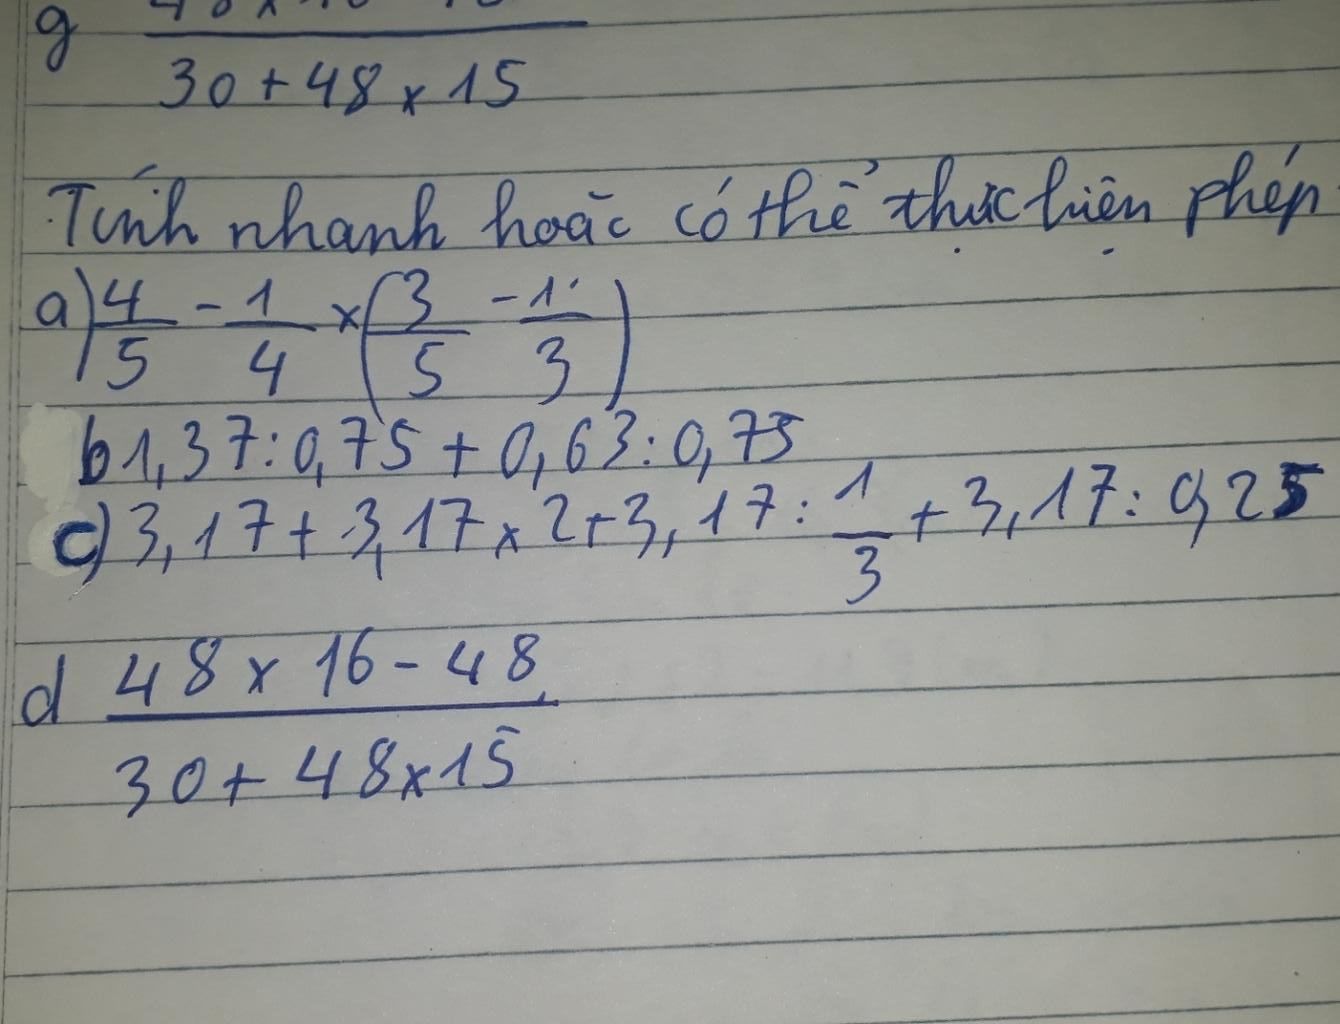 g 48 x 16 - 48 / 30 + 48 x 15
Tính nhanh hoặc có thể thực hiện phép
a) 4/5 - 1/4 x (3/5 - 1/3)
b 1,37 : 0,75 + 0,63 : 0,75
c) 3,17 + 3,17 x 2 + 3,17 : 1/3 + 3,17 : 0,25
d 48 x 16 - 48 / 30 + 48 x 15